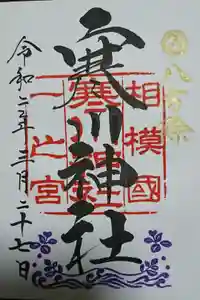 八方除
相模國
寒川神社
一之宮
令和二年三月二十七日